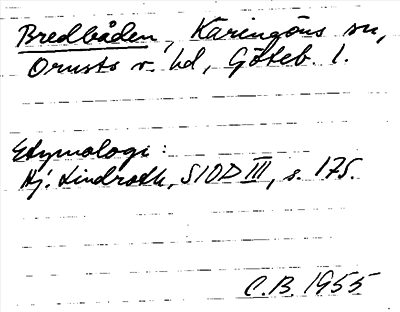 Bredbåden, Käringöns sn,
Orusts v. hd, Göteb. l.
Etymologi:
Hj. Lindroth, SIOD III, s. 175.
C.B. 1955